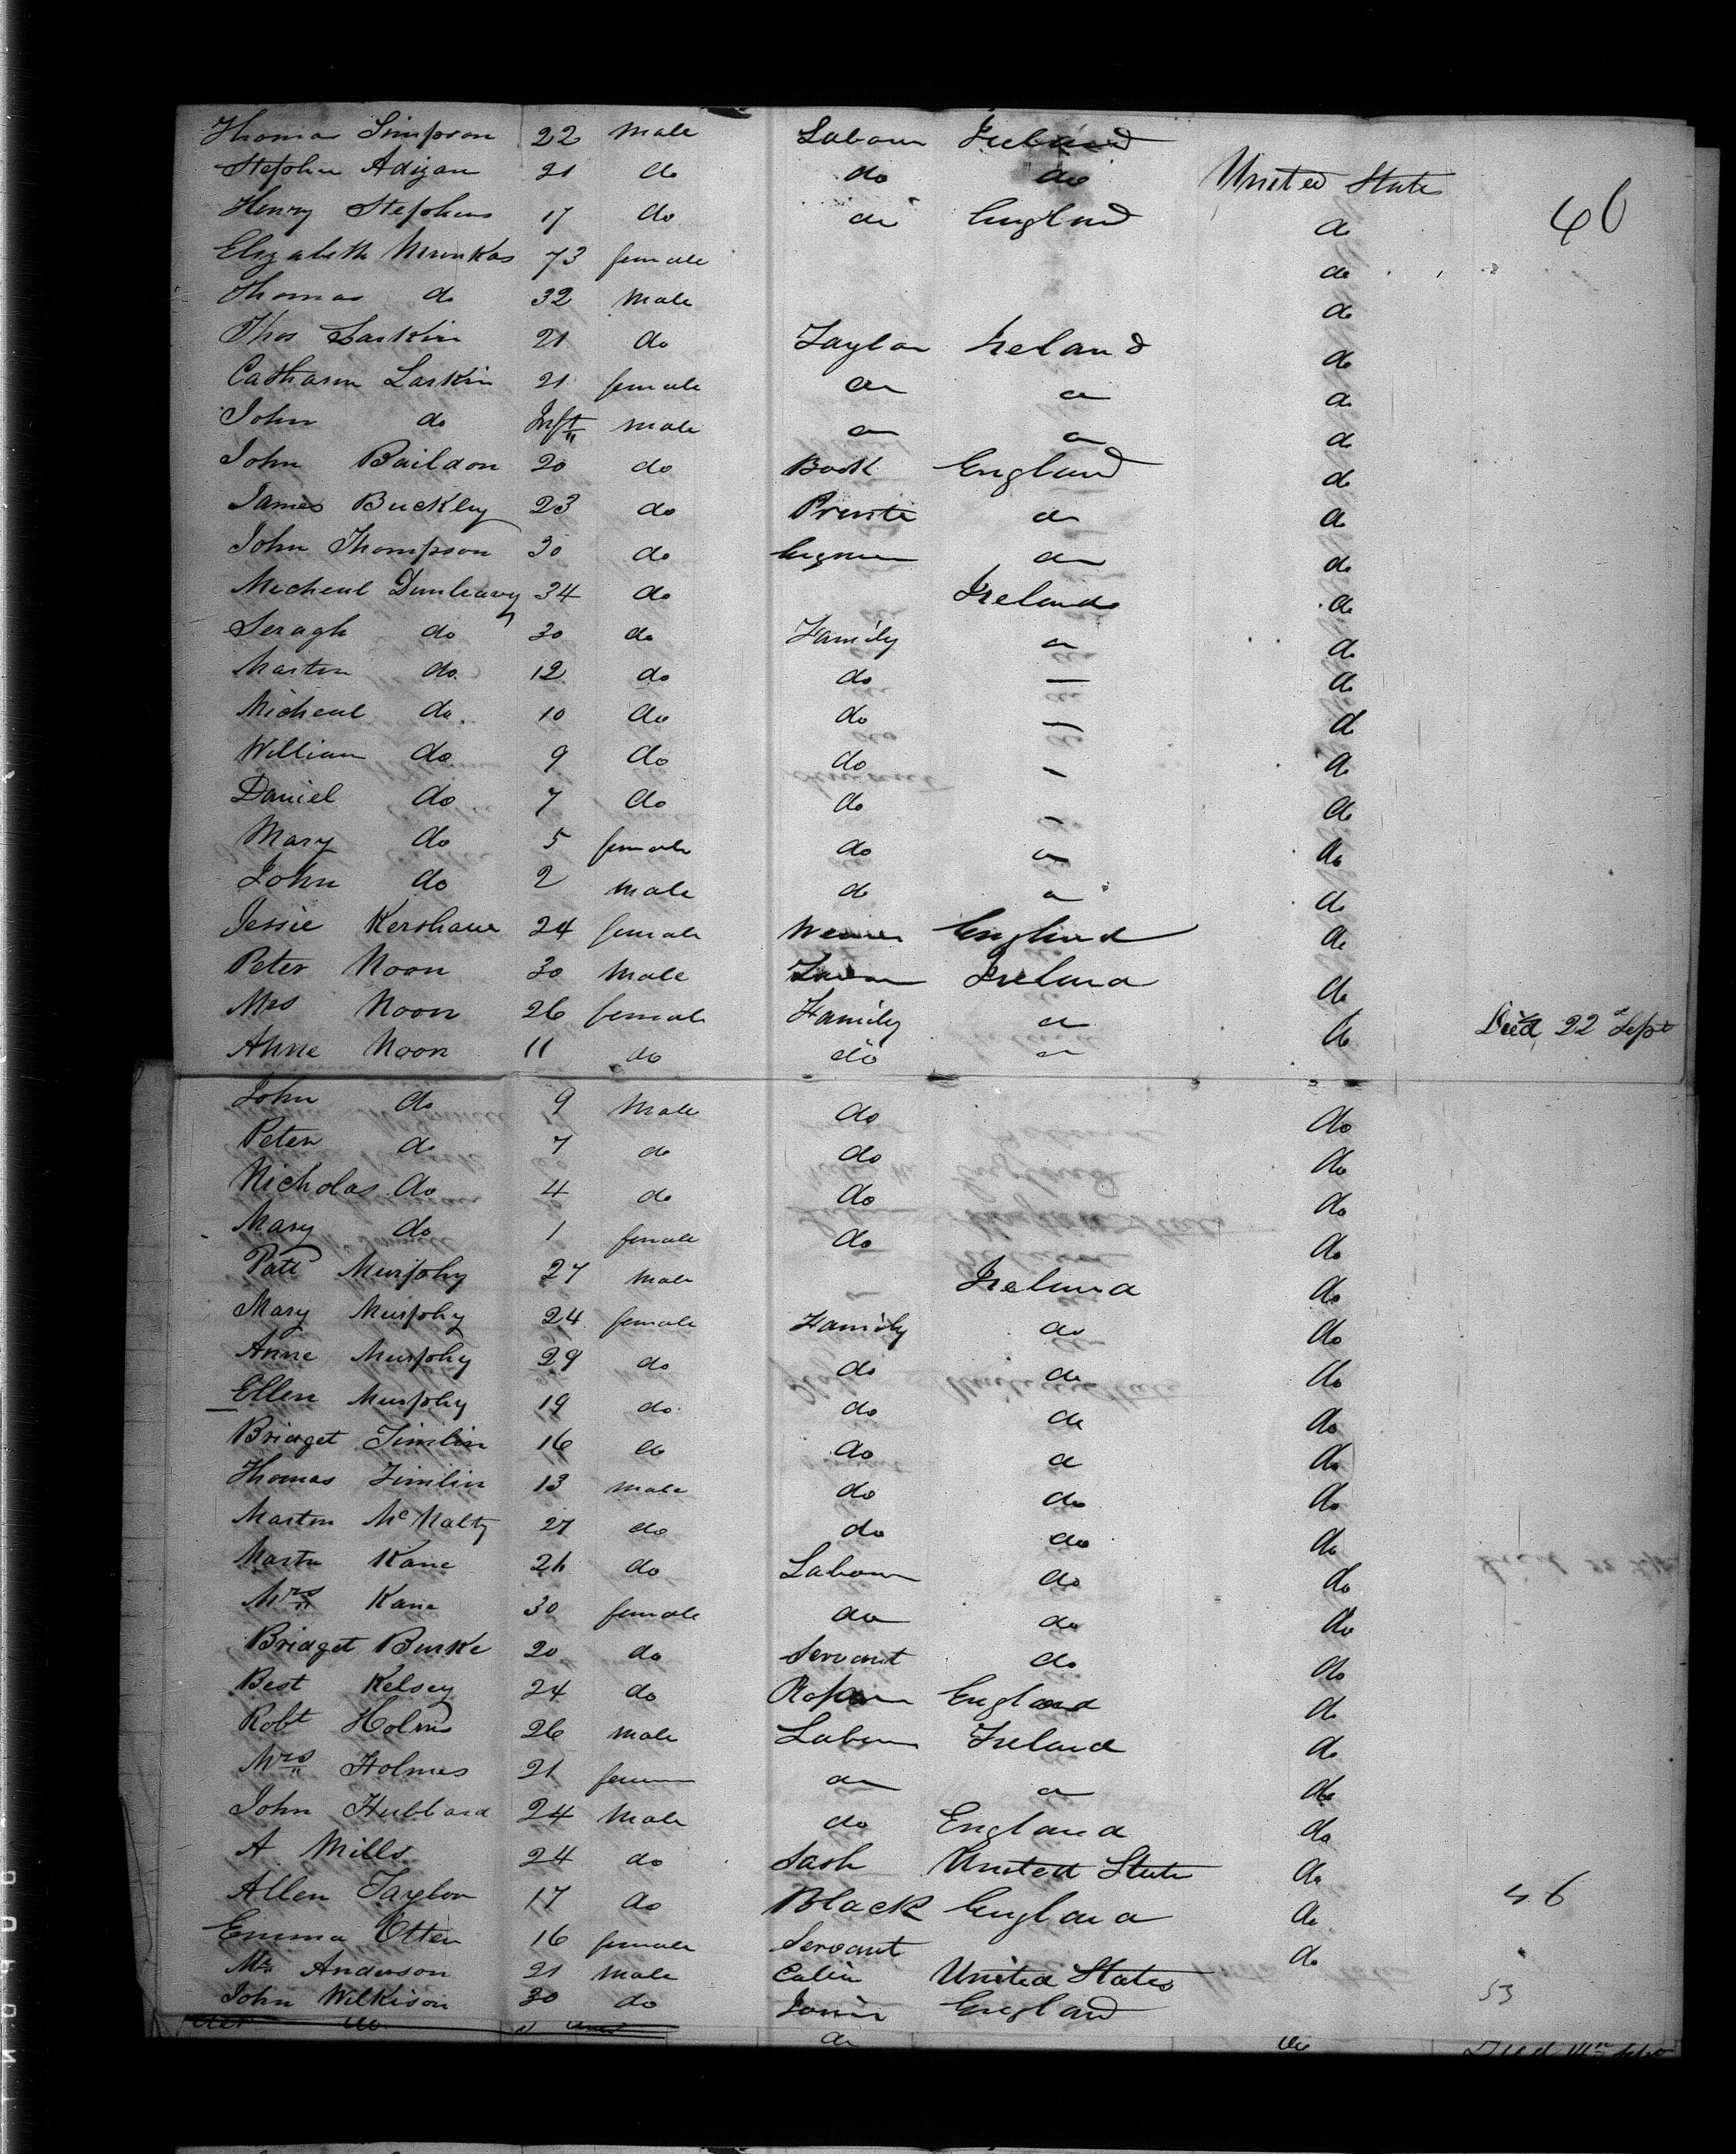 Thomas Simpson 22 Male Labour Ireland
Stephen Adigan 21 do do do United States
Henry Stephens 17 do do England do 46
Elizabeth 73 female do
Thomas do 32 Male do
Thos Larkin 21 do Taylor Ireland do
Catharin Larkin 21 female do do do
John do Inft male do do do
John Baildon 20 do Book England do
James Buckley 23 do do do
John Thompson 30 do do do
Micheal Dunleavy 34 do Ireland do
Seragh do 30 do Family do do
Martin do 12 do do — do
Micheal do 10 do do — do
William do 9 do do — do
Daniel do 7 do do — do
Mary do 5 female do do do
John do 2 male do do do
Jessie Kershaw 24 female England do
Peter Noon 30 Male Ireland do
Mrs Noon 26 female Family do do Died 22d Sept
Anne Noon 11 do do do
John do 9 Male do do
Peter do 7 do do do
Nicholas do 4 do do do
Mary do 1 female do do
Patt Murphy 27 Male Ireland do
Mary Murphy 24 female Family do do
Anne Murphy 29 do do do do
Ellen Murphy 19 do do do do
Bridget Timlin 16 do do do do
Thomas Timlin 13 male do do do
Martin McNalty 27 do do do do
Martn Kane 26 do Labour do do
Mrs Kane 30 female do do do
Bridget Burke 20 do Servant do do
Best Kelsey 24 do England do
Robt Holms 26 male Labour Ireland do
Mrs Holmes 21 do do do
John Hubbard 24 Male do England do
A Mills 24 do Sash United State do
Allen Taylor 17 do Black England do 46
Emma Otter 16 female Servant do
Mr Anderson 21 Male Cabin United States
John Wilkison 30 do England 53
do do do Died 14th Sept